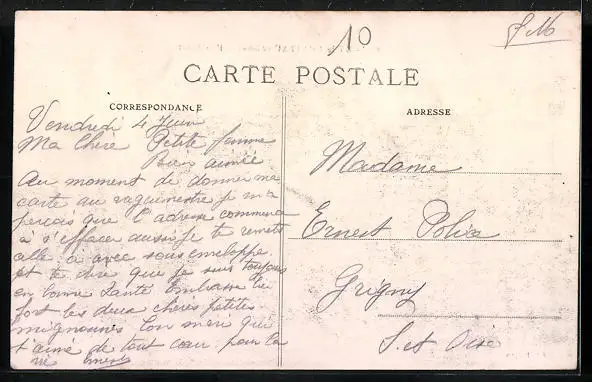 10
F.M
CARTE POSTALE
CORRESPONDANCE
ADRESSE
Vendredi 4 Juin
Ma Chère Petite femme
Bien aimée
Au moment de donner ma
carte au vaguemestre je m'a
perçois que l'adresse commence
à s'effacer aussi je te remets
celle a avec sous enveloppe
et te dire que je suis toujours
en bonne santé Embrasse bien
fort les deux chères petites
mignonnes ton mari qui
t'aime de tout cœur pour la
vie
Madame
Ernest
Grigny
S. et Oise